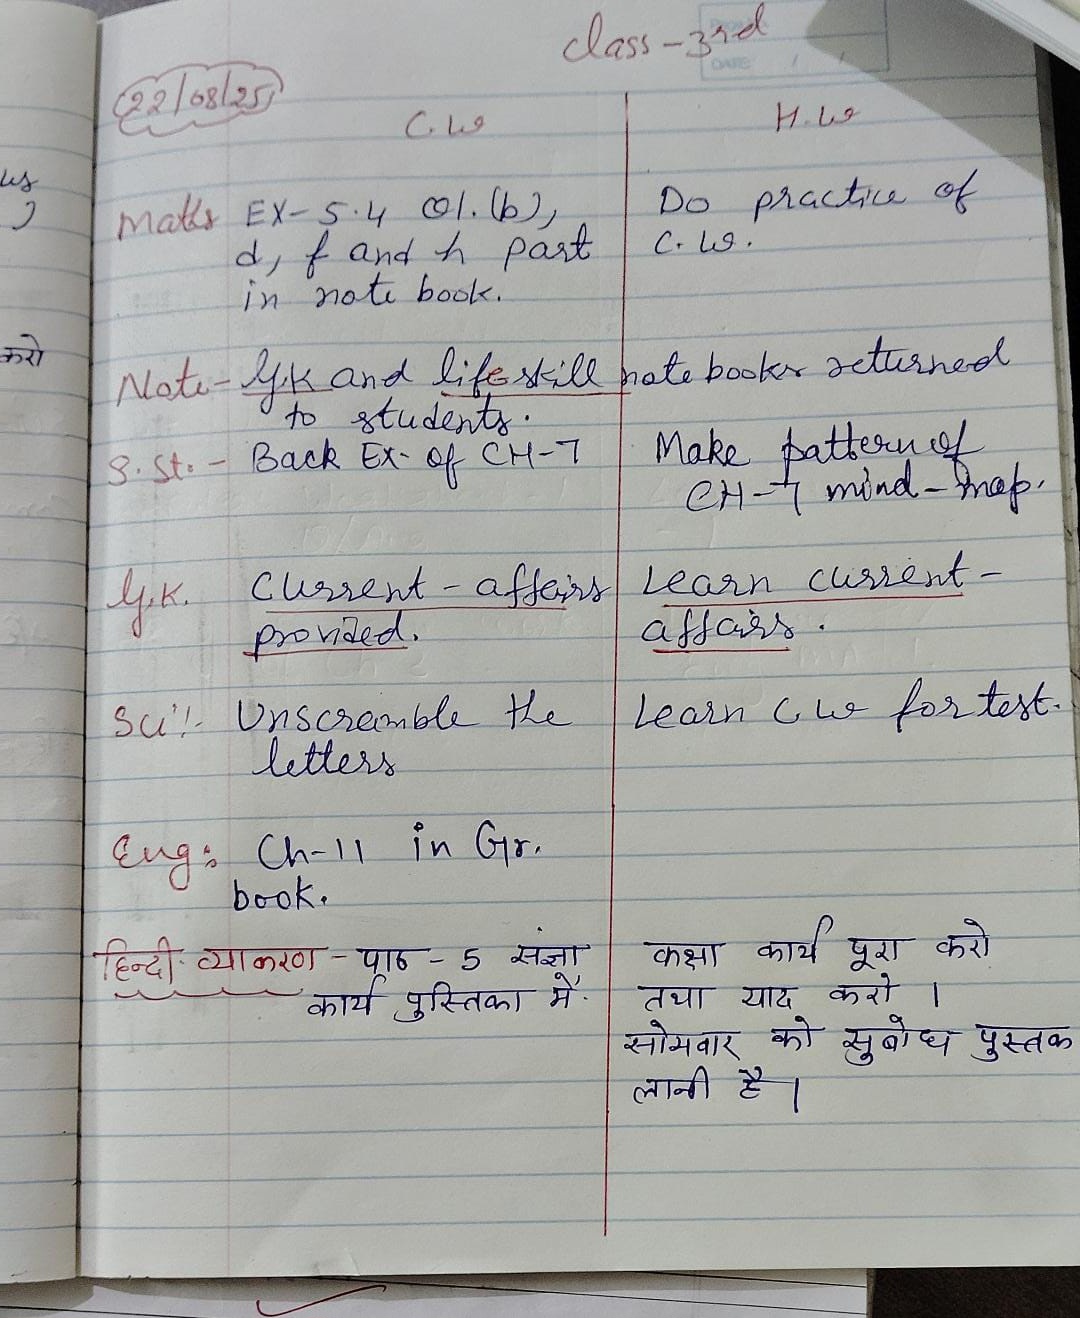 class - 3rd
DATE / /
22/08/25
C.W H.W
Maths EX- 5.4 Q1. (b), Do practice of
d, f and h part C.W.
in note book.
Note - G.K and life skill note books returned
to students.
S.St. - Back Ex- of CH-7 Make pattern of
CH-7 mind-map.
G.K. Current - affairs Learn current -
provided. affairs.
Sci:- Unscramble the Learn C W for test.
letters
Eng: Ch-11 in Gr.
book.
हिन्दी व्याकरण - पाठ - 5 संज्ञा कक्षा कार्य पूरा करो
कार्य पुस्तिका में. तथा याद करो ।
सोमवार को सुबोध पुस्तक
लानी है ।
करो